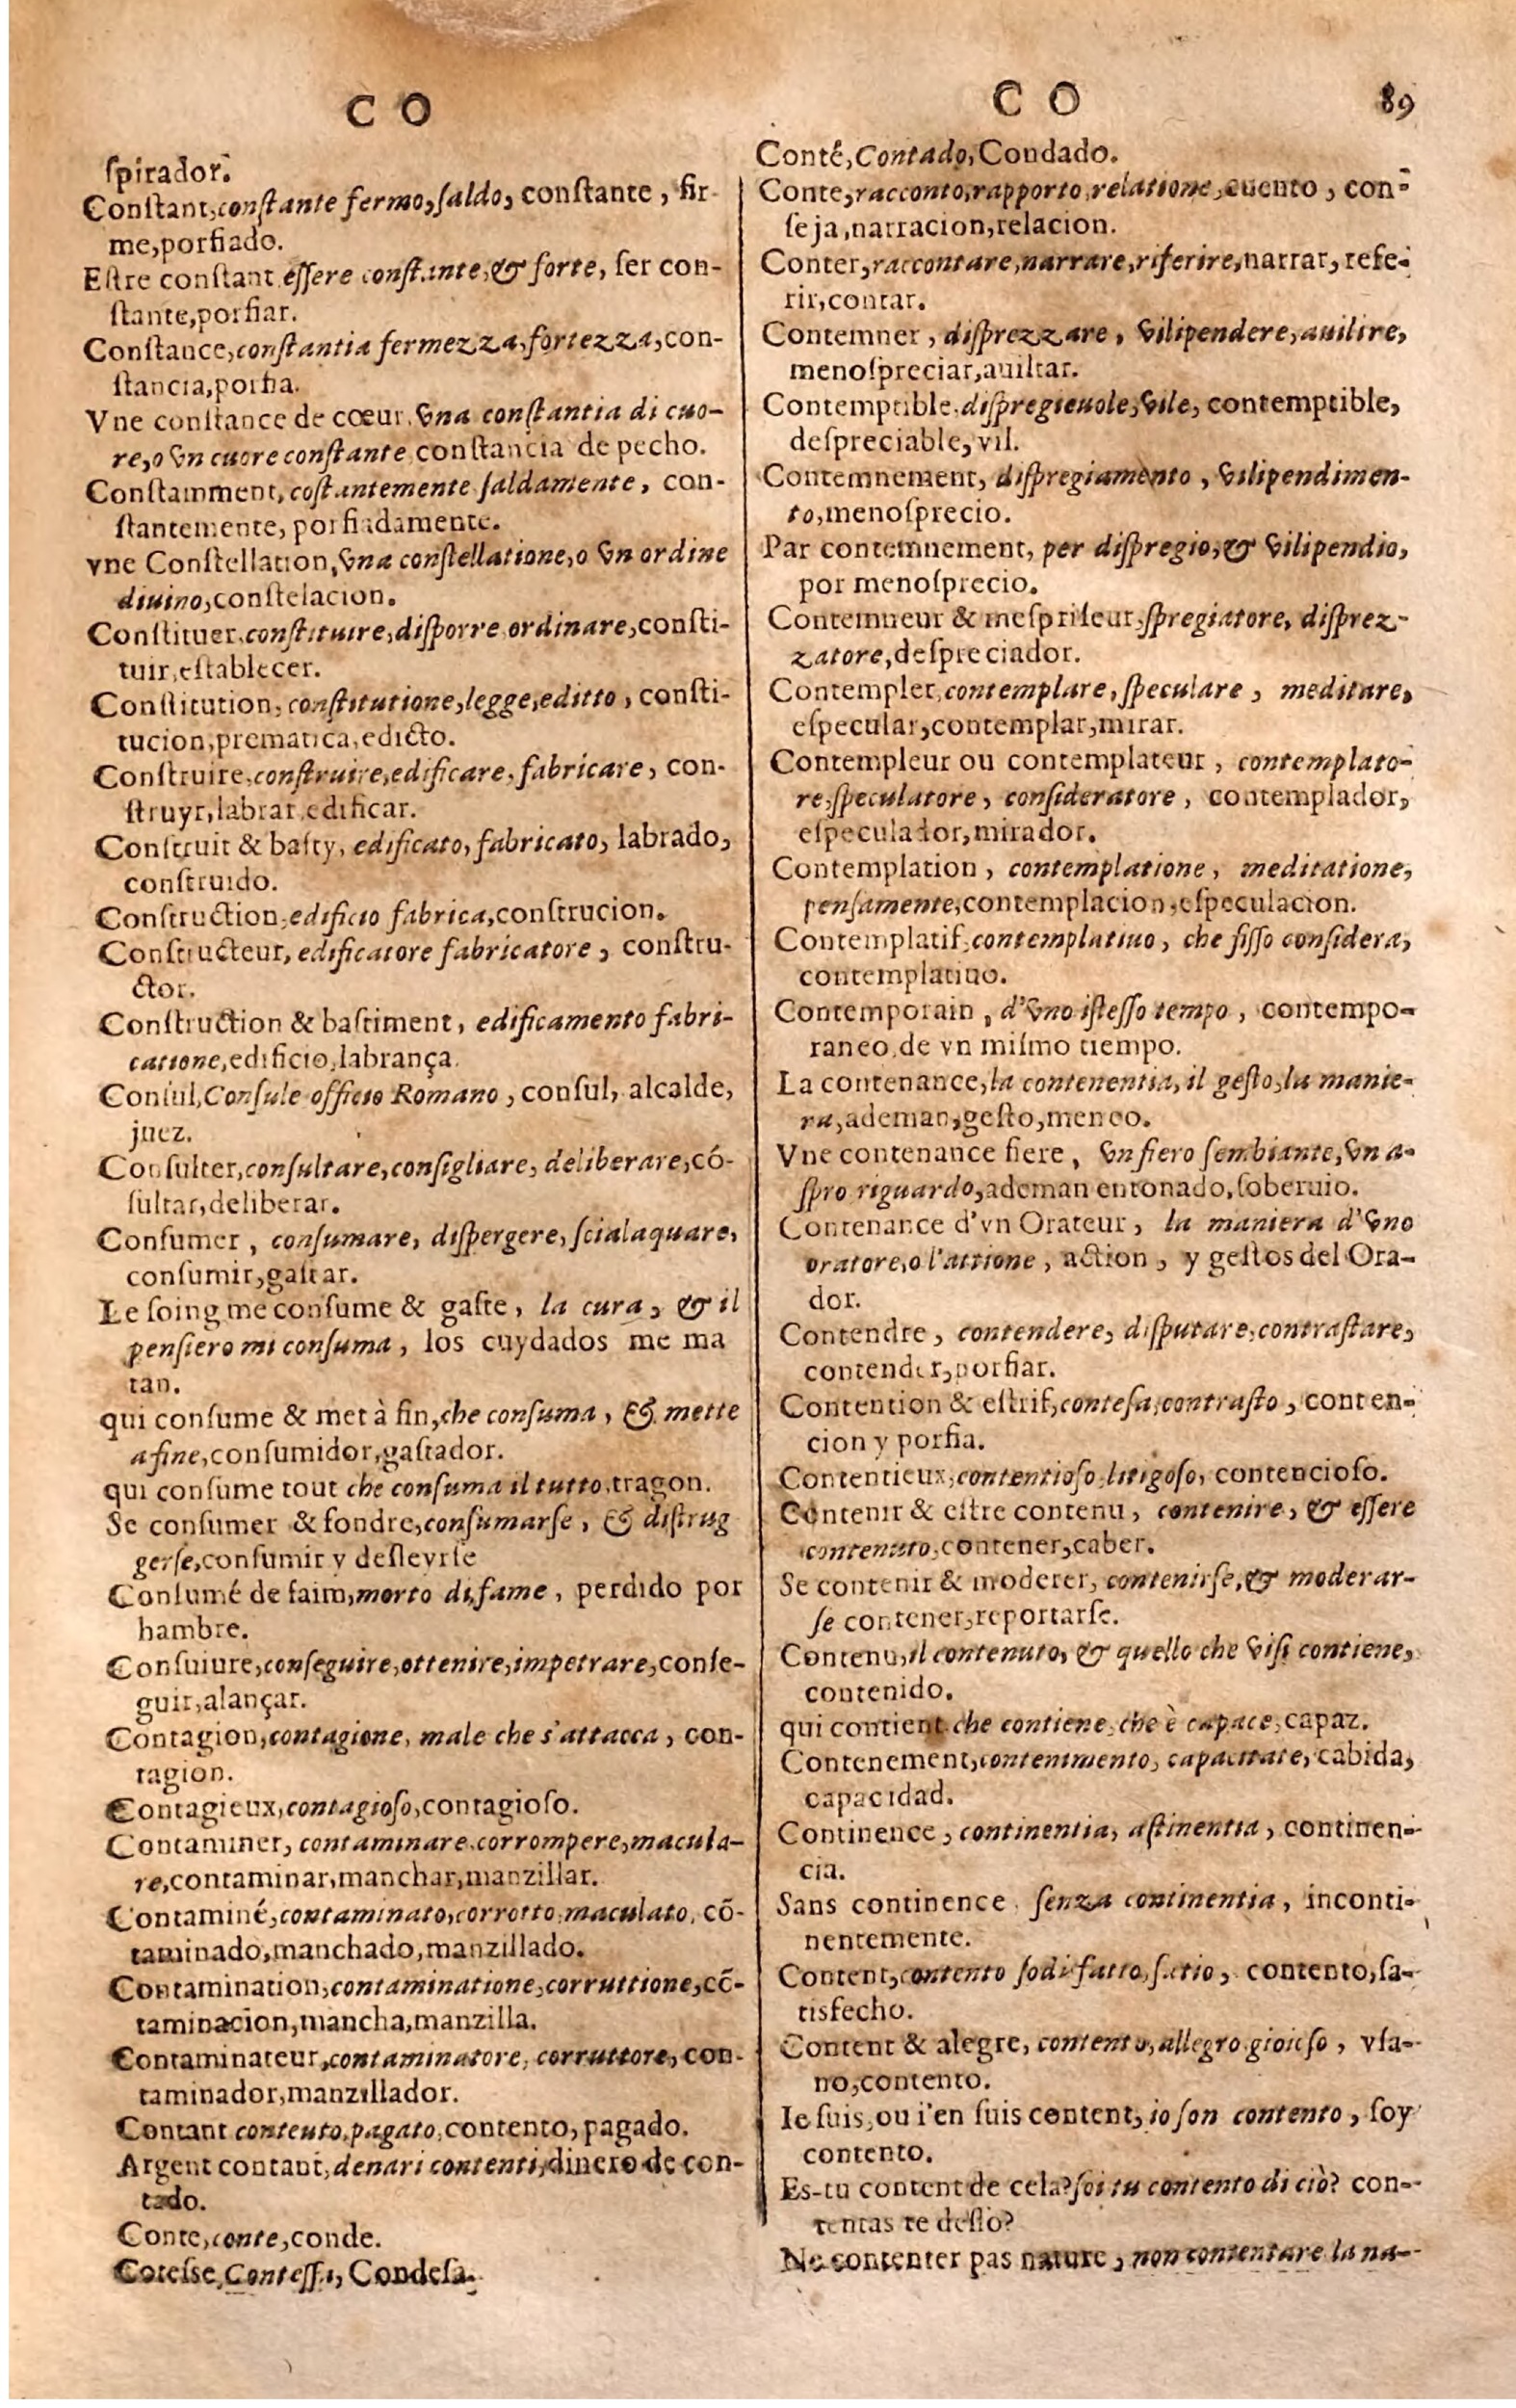 C O
ſpirador.
Conſtant, conſtante fermo, ſaldo, conſtante, fir-
me, porfiado.
Eſtre conſtant eſſere conſtante, & forte, ſer con-
ſtante, porfiar.
Conſtance, conſtantia fermezza, fortezza, con-
ſtancia, porfia.
Vne conſtance de cœur, vna conſtantia di cuo-
re, o vn cuore conſtante conſtancia de pecho.
Conſtamment, coſtantemente ſaldamente, con-
ſtantemente, porfiadamente.
vne Conſtellation, vna conſtellatione, o vn ordine
diuino, conſtelacion.
Conſtituer, conſtituire, diſporre ordinare, conſti-
tuir, eſtablecer.
Conſtitution, conſtitutione, legge, editto, conſti-
tucion, prematica, edicto.
Conſtruire, conſtruire, edificare, fabricare, con-
ſtruyr, labrar edificar.
Conſtruit & baſty, edificato, fabricato, labrado,
conſtruido.
Conſtruction, edificio fabrica, conſtrucion.
Conſtructeur, edificatore fabricatore, conſtru-
ctor.
Conſtruction & baſtiment, edificamento fabri-
catione, edificio, labrança.
Conſul, Conſule officio Romano, conſul, alcalde,
juez.
Conſulter, conſultare, conſigliare, deliberare, có-
ſultar, deliberar.
Conſumer, conſumare, diſpergere, ſcialaquare,
conſumir, gaſtar.
Le ſoing me conſume & gaſte, la cura, & il
penſiero mi conſuma, los cuydados me ma
tan.
qui conſume & met à fin, che conſuma, & mette
a fine, conſumidor, gaſtador.
qui conſume tout che conſuma il tutto, tragon.
Se conſumer & fondre, conſumarſe, & diſtrug
gerſe, conſumir y deſleyrſe
Conſumé de faim, morto di fame, perdido por
hambre.
Conſuiure, conſeguire, ottenire, impetrare, conſe-
guir, alançar.
Contagion, contagione, male che s'attacca, con-
tagion.
Contagieux, contagioſo, contagioſo.
Contaminer, contaminare, corrompere, macula-
re, contaminar, manchar, manzillar.
Contaminé, contaminato, corrotto, maculato, cõ-
taminado, manchado, manzillado.
Contamination, contaminatione, corruttione, cõ-
taminacion, mancha, manzilla.
Contaminateur, contaminatore, corruttore, con-
taminador, manzillador.
Contant contento, pagato, contento, pagado.
Argent contant, denari contenti, dinero de con-
tado.
Conte, conte, conde.
Cóteſſe, Conteſſa, Condeſa.
C O 89
Conté, Contado, Condado.
Conte, racconto, rapporto, relatione, cuento, con-
ſeja, narracion, relacion.
Conter, raccontare, narrare, riferire, narrar, refe-
rir, contar.
Contemner, diſprezzare, vilipendere, auilire,
menoſpreciar, auiltar.
Contemptible, diſpregieuole, vile, contemptible,
deſpreciable, vil.
Contemnement, diſpregiamento, vilipendimen-
to, menoſprecio.
Par contemnement, per diſpregio, & vilipendio,
por menoſprecio.
Contemneur & meſpriſeur, ſpregiatore, diſprez-
zatore, deſpreciador.
Contempler, contemplare, ſpeculare, meditare,
eſpecular, contemplar, mirar.
Contempleur ou contemplateur, contemplato-
re, ſpeculatore, conſideratore, contemplador,
eſpeculador, mirador.
Contemplation, contemplatione, meditatione,
penſamente, contemplacion, eſpeculacion.
Contemplatif, contemplatiuo, che fiſſo conſidera,
contemplatiuo.
Contemporain, d'vno iſteſſo tempo, contempo-
raneo, de vn miſmo tiempo.
La contenance, la contenentia, il geſto, la manie-
ra, ademan, geſto, meneo.
Vne contenance fiere, vn fiero ſembiante, vn a-
ſpro riguardo, ademan entonado, ſoberuio.
Contenance d'vn Orateur, la maniera d'vno
oratore, o l'attione, action, y geſtos del Ora-
dor.
Contendre, contendere, diſputare, contraſtare,
contender, porfiar.
Contention & eſtrif, conteſa, contraſto, conten-
cion y porfia.
Contentieux, contentioſo, litigoſo, contencioſo.
Contenir & eſtre contenu, contenire, & eſſere
contenuto, contener, caber.
Se contenir & moderer, contenirſe, & moderar-
ſe contener, reportarſe.
Contenu, il contenuto, & quello che viſi contiene,
contenido.
qui contient che contiene, che è capace, capaz.
Contenement, contenimento, capacitate, cabida,
capacidad.
Continence, continentia, aſtinentia, continen-
cia.
Sans continence, ſenza continentia, inconti-
nentemente.
Content, contento ſodisfatto, ſatio, contento, ſa-
tisfecho.
Content & alegre, contento, allegro gioioſo, vfa-
no, contento.
Ie ſuis, ou i'en ſuis content, io ſon contento, ſoy
contento.
Es-tu content de cela? ſoi tu contento di ciò? con-
tentas te deſſo?
Ne contenter pas nature, non contentare la na-